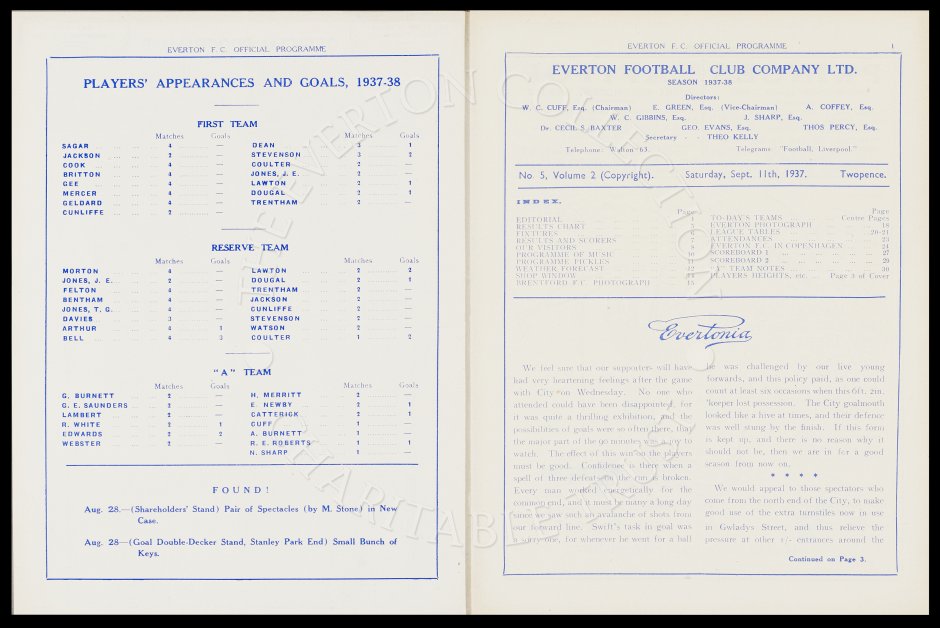 EVERTON F.C. OFFICIAL PROGRAMME
PLAYERS' APPEARANCES AND GOALS, 1937-38
FIRST TEAM
Matches Goals Matches Goals
SAGAR ... ... 4 — DEAN ... ... 3 1
JACKSON ... ... 2 — STEVENSON ... ... 3 2
COOK ... ... 4 — COULTER ... ... 2 —
BRITTON ... ... 4 — JONES, J. E. ... ... 2 —
GEE ... ... 4 — LAWTON ... ... 2 1
MERCER ... ... 4 — DOUGAL ... ... 2 1
GELDARD ... ... 4 — TRENTHAM ... ... 2 —
CUNLIFFE ... ... 2 —
RESERVE TEAM
Matches Goals Matches Goals
MORTON ... ... 4 — LAWTON ... ... 2 2
JONES, J. E. ... ... 2 — DOUGAL ... ... 2 1
FELTON ... ... 4 — TRENTHAM ... ... 2 —
BENTHAM ... ... 4 — JACKSON ... ... 2 —
JONES, T. G. ... ... 4 — CUNLIFFE ... ... 2 —
DAVIES ... ... 3 — STEVENSON ... ... —
ARTHUR ... ... 4 1 WATSON ... ... 2 —
BELL ... ... 4 3 COULTER ... ... 1 2
"A" TEAM
Matches Goals Matches Goals
G. BURNETT ... ... 2 — H. MERRITT ... ... 2 —
G. E. SAUNDERS ... 2 — E. NEWBY ... ... 2 1
LAMBERT ... ... 2 — CATTERICK ... ... 2 1
R. WHITE ... ... 2 1 CUFF ... ... 1 —
EDWARDS ... ... 2 2 A. BURNETT ... ... 1 —
WEBSTER ... ... 2 — R. E. ROBERTS ... ... 1 1
N. SHARP ... ... 1 —
FOUND!
Aug. 28.—(Shareholders' Stand) Pair of Spectacles (by M. Stone) in New
Case.
Aug. 28—(Goal Double-Decker Stand, Stanley Park End) Small Bunch of
Keys.
EVERTON F.C. OFFICIAL PROGRAMME 1
EVERTON FOOTBALL CLUB COMPANY LTD.
SEASON 1937-38
Directors:
W. C. CUFF, Esq. (Chairman) E. GREEN, Esq. (Vice-Chairman) A. COFFEY, Esq.
W. C. GIBBINS, Esq. J. SHARP, Esq.
Dr. CECIL S. BAXTER GEO. EVANS, Esq. THOS PERCY, Esq.
Secretary - - THEO KELLY
Telephone: Walton 63. Telegrams: "Football, Liverpool."
No. 5, Volume 2 (Copyright). Saturday, Sept. 11th, 1937. Twopence.
INDEX.
Page Page
EDITORIAL ... 1 TO-DAY'S TEAMS ... Centre Pages
RESULTS CHART ... EVERTON PHOTOGRAPH ... 18
FIXTURES ... 6 LEAGUE TABLES ... 20-21
RESULTS AND SCORERS ... 7 ATTENDANCES ... 23
OUR VISITORS ... 8 EVERTON F.C. IN COPENHAGEN ... 24
PROGRAMME OF MUSIC ... 10 SCOREBOARD 1 ... 27
PROGRAMME PICKLES ... 11 SCOREBOARD 2 ... 29
WEATHER FORECAST ... 12 "A" TEAM NOTES ... 30
SHOP WINDOW ... 14 PLAYERS HEIGHTS, etc. ... Page 3 of Cover
BRENTFORD F.C. PHOTOGRAPH ... 15
Evertonia
We feel sure that our supporters will have
had very heartening feelings after the game
with City on Wednesday. No one who
attended could have been disappointed, for
it was quite a thrilling exhibition, and the
possibilities of goals were so often there, that
the major part of the 90 minutes was a joy to
watch. The effect of this win on the players
must be good. Confidence is there when a
spell of three defeats on the run is broken.
Every man worked energetically for the
common end, and it must be many a long day
since we saw such an avalanche of shots from
our forward line. Swift's task in goal was
a sorry one, for whenever he went for a ball
he was challenged by our live young
forwards, and this policy paid, as one could
count at least six occasions when this 6ft. 2in.
'keeper lost possession. The City goalmouth
looked like a hive at times, and their defence
was well stung by the finish. If this form
is kept up, and there is no reason why it
should not be, then we are in for a good
season from now on.
* * * *
We would appeal to those spectators who
come from the north end of the City, to make
good use of the extra turnstiles now in use
in Gwladys Street, and thus relieve the
pressure at other 1/- entrances around the
Continued on Page 3.
THE EVERTON COLLECTION
CHARITABLE